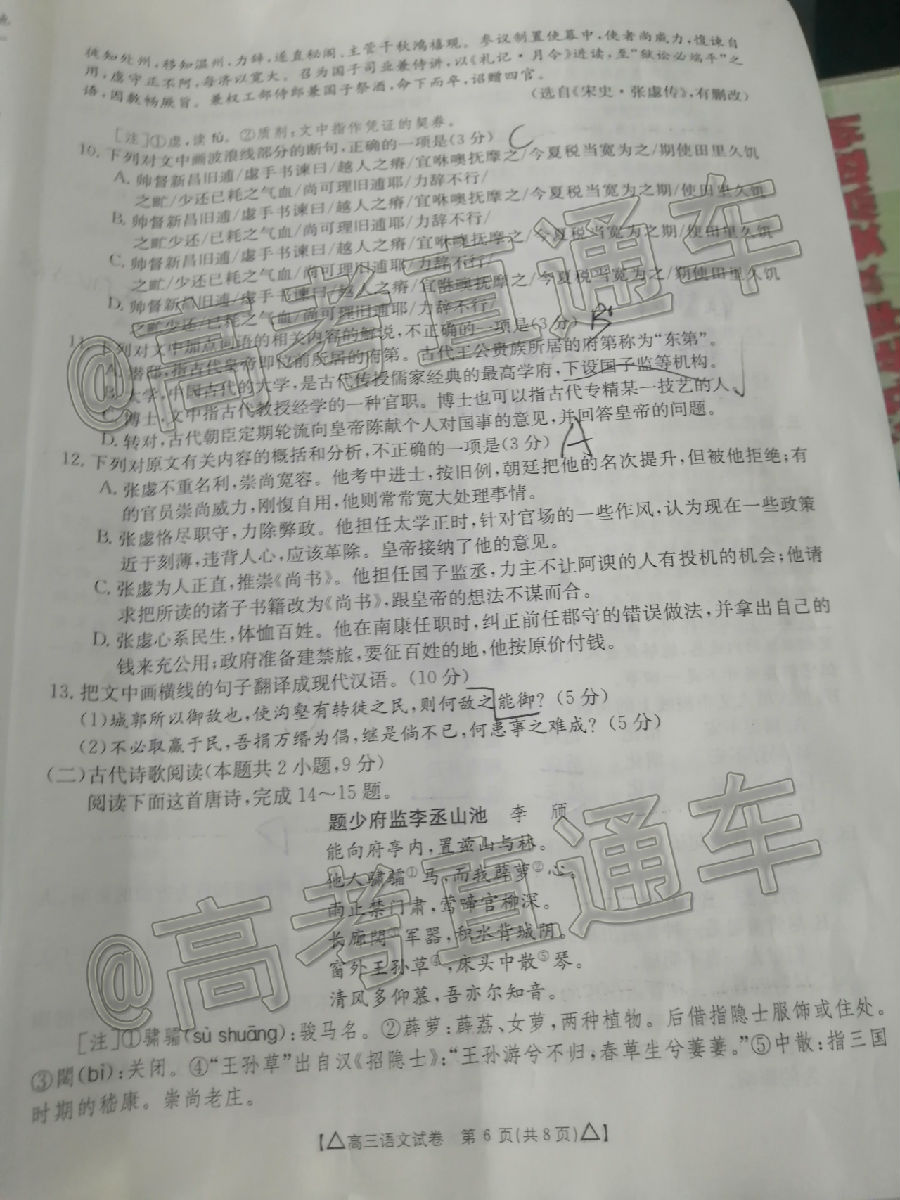 徙知处州,移知温州,力辞,遂直秘阁、主管千秋鸿禧观。参议制置使幕中,使者尚威力,愎谏自
用,虙守正不阿,每济以宽大。召为国子司业兼侍讲,以《札记·月令》进读,至“狱讼必端平”之
语,因敷畅厥旨。兼权工部侍郎兼国子祭酒,命下而卒,诏赠四官。
(选自《宋史·张虙传》,有删改)
[注]①虙,读fú。②质剂:文中指作凭证的契券。
10. 下列对文中画波浪线部分的断句,正确的一项是(3分) C
A. 帅督新昌旧逋/虙手书谏曰/越人之瘠/宜咻噢抚摩之/今夏税当宽为之/期使田里久饥
之甿/少还已耗之气血/尚可理旧逋耶/力辞不行/
B. 帅督新昌旧逋/虙手书谏曰/越人之瘠/宜咻噢抚摩之/今夏税当宽为之/期使田里久饥
之甿少还/已耗之气血/尚可理旧逋耶/力辞不行/
C. 帅督新昌旧逋/虙手书谏曰/越人之瘠/宜咻噢抚摩之/今夏税当宽为之期/使田里久饥
之甿/少还已耗之气血/尚可理旧逋耶/力辞不行/
D. 帅督新昌旧逋/虙手书谏曰/越人之瘠/宜咻噢抚摩之/今夏税当宽为之期/使田里久饥
之甿少还/已耗之气血/尚可理旧逋耶/力辞不行/
11. 下列对文中加点词语的相关内容的解说,不正确的一项是(3分) B
A. 潜邸,指古代皇帝即位前所居的府第。古代王公贵族所居的府第称为“东第”。
B. 太学,中国古代的大学,是古代传授儒家经典的最高学府,下设国子监等机构。
C. 博士,文中指古代教授经学的一种官职。博士也可以指古代专精某一技艺的人。
D. 转对,古代朝臣定期轮流向皇帝陈献个人对国事的意见,并回答皇帝的问题。
12. 下列对原文有关内容的概括和分析,不正确的一项是(3分) A
A. 张虙不重名利,崇尚宽容。他考中进士,按旧例,朝廷把他的名次提升,但被他拒绝;有
的官员崇尚威力,刚愎自用,他则常常宽大处理事情。
B. 张虙恪尽职守,力除弊政。他担任太学正时,针对官场的一些作风,认为现在一些政策
近于刻薄,违背人心,应该革除。皇帝接纳了他的意见。
C. 张虙为人正直,推崇《尚书》。他担任国子监丞,力主不让阿谀的人有投机的机会;他请
求把所读的诸子书籍改为《尚书》,跟皇帝的想法不谋而合。
D. 张虙心系民生,体恤百姓。他在南康任职时,纠正前任郡守的错误做法,并拿出自己的
钱来充公用;政府准备建禁旅,要征百姓的地,他按原价付钱。
13. 把文中画横线的句子翻译成现代汉语。(10分)
(1)城郭所以御敌也,使沟壑有转徙之民,则何敌之能御?(5分)
(2)不必取赢于民,吾捐万缗为倡,继是倘不已,何患事之难成?(5分)
(二)古代诗歌阅读(本题共2小题,9分)
阅读下面这首唐诗,完成14~15题。
题少府监李丞山池 李 颀
能向府亭内,置兹山与林。
他人骕骦①马,而我薜萝②心。
雨止禁门肃,莺啼官柳深。
长廊閟③军器,积水背城阴。
窗外王孙草④,床头中散⑤琴。
清风多仰慕,吾亦尔知音。
[注]①骕骦(sù shuāng):骏马名。②薜萝:薜荔、女萝,两种植物。后借指隐士服饰或住处。
③閟(bì):关闭。④“王孙草”出自汉《招隐士》:“王孙游兮不归,春草生兮萋萋。”⑤中散:指三国
时期的嵇康。崇尚老庄。
【△高三语文试卷 第6页(共8页)△】
@高考直通车
@高考直通车